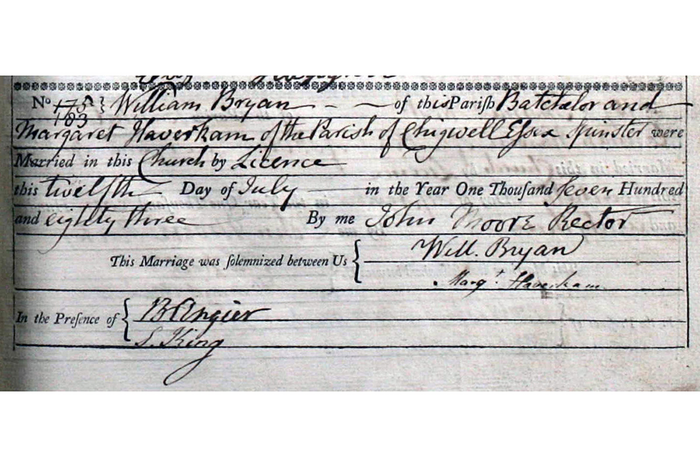 No 175 William Bryan — — of this Pariſh Batchelor and
183
Margaret Haverkam of the Parish of Chigwell Essex Spinster were
Married in this Church by Licence
this twelfth Day of July in the Year One Thouſand Seven Hundred
and eighty three By me John Moore Rector
This Marriage was ſolemnized between Us { Will. Bryan
Margt. Haverkam
In the Preſence of { B Angier
S. King